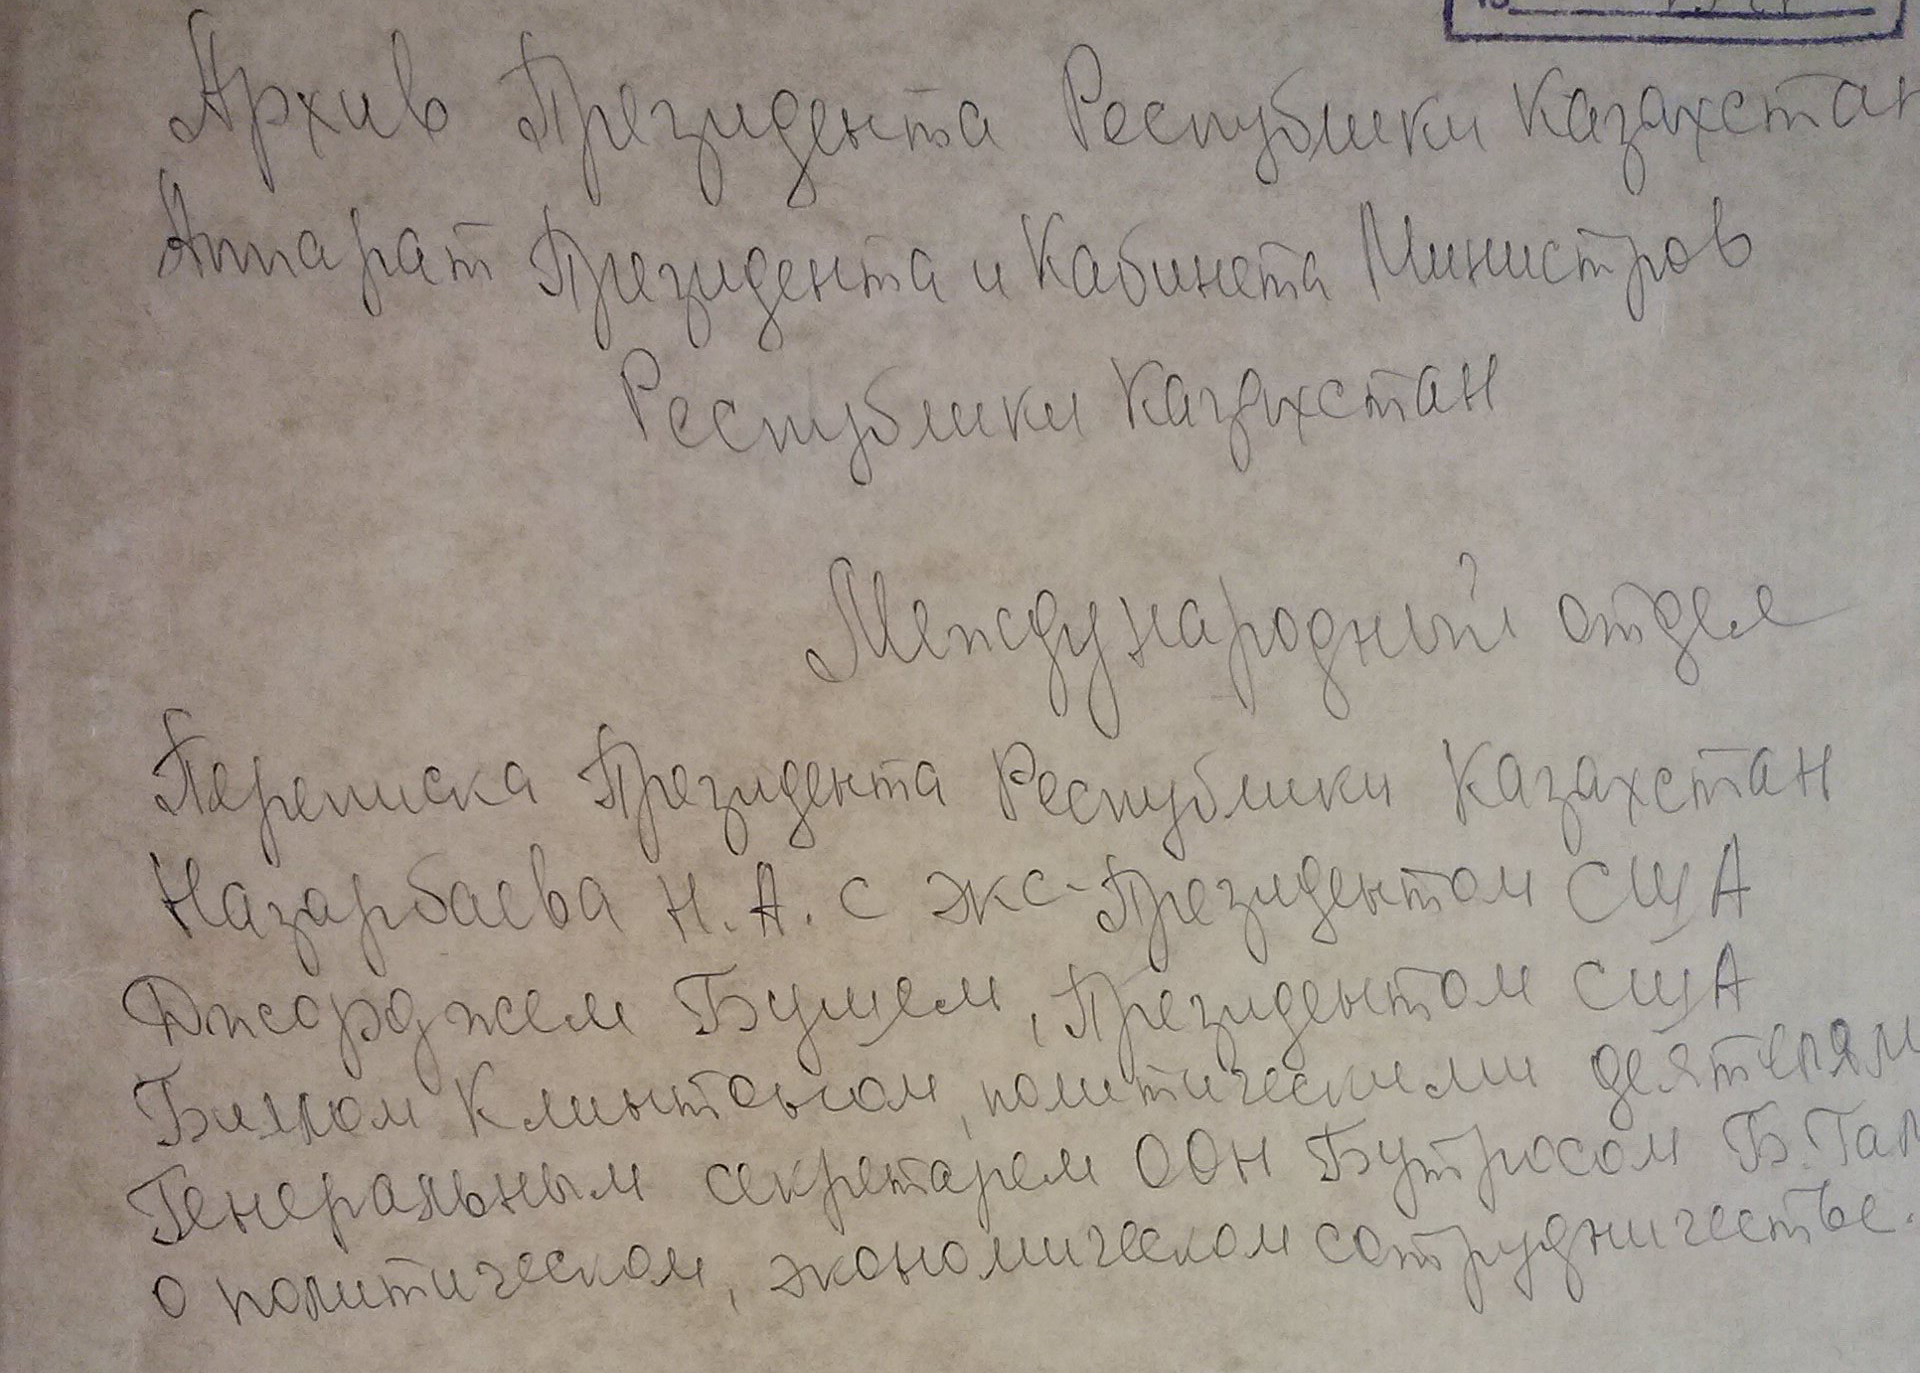 Архив Президента Республики Казахстан
Аппарат Президента и Кабинета Министров
Республики Казахстан
Международный отдел
Переписка Президента Республики Казахстан
Назарбаева Н.А. с экс-Президентом США
Джорджем Бушем, Президентом США
Биллом Клинтоном, политическими деятелями
Генеральным секретарем ООН Бутросом Б. Гал
о политическом, экономическом сотрудничестве.